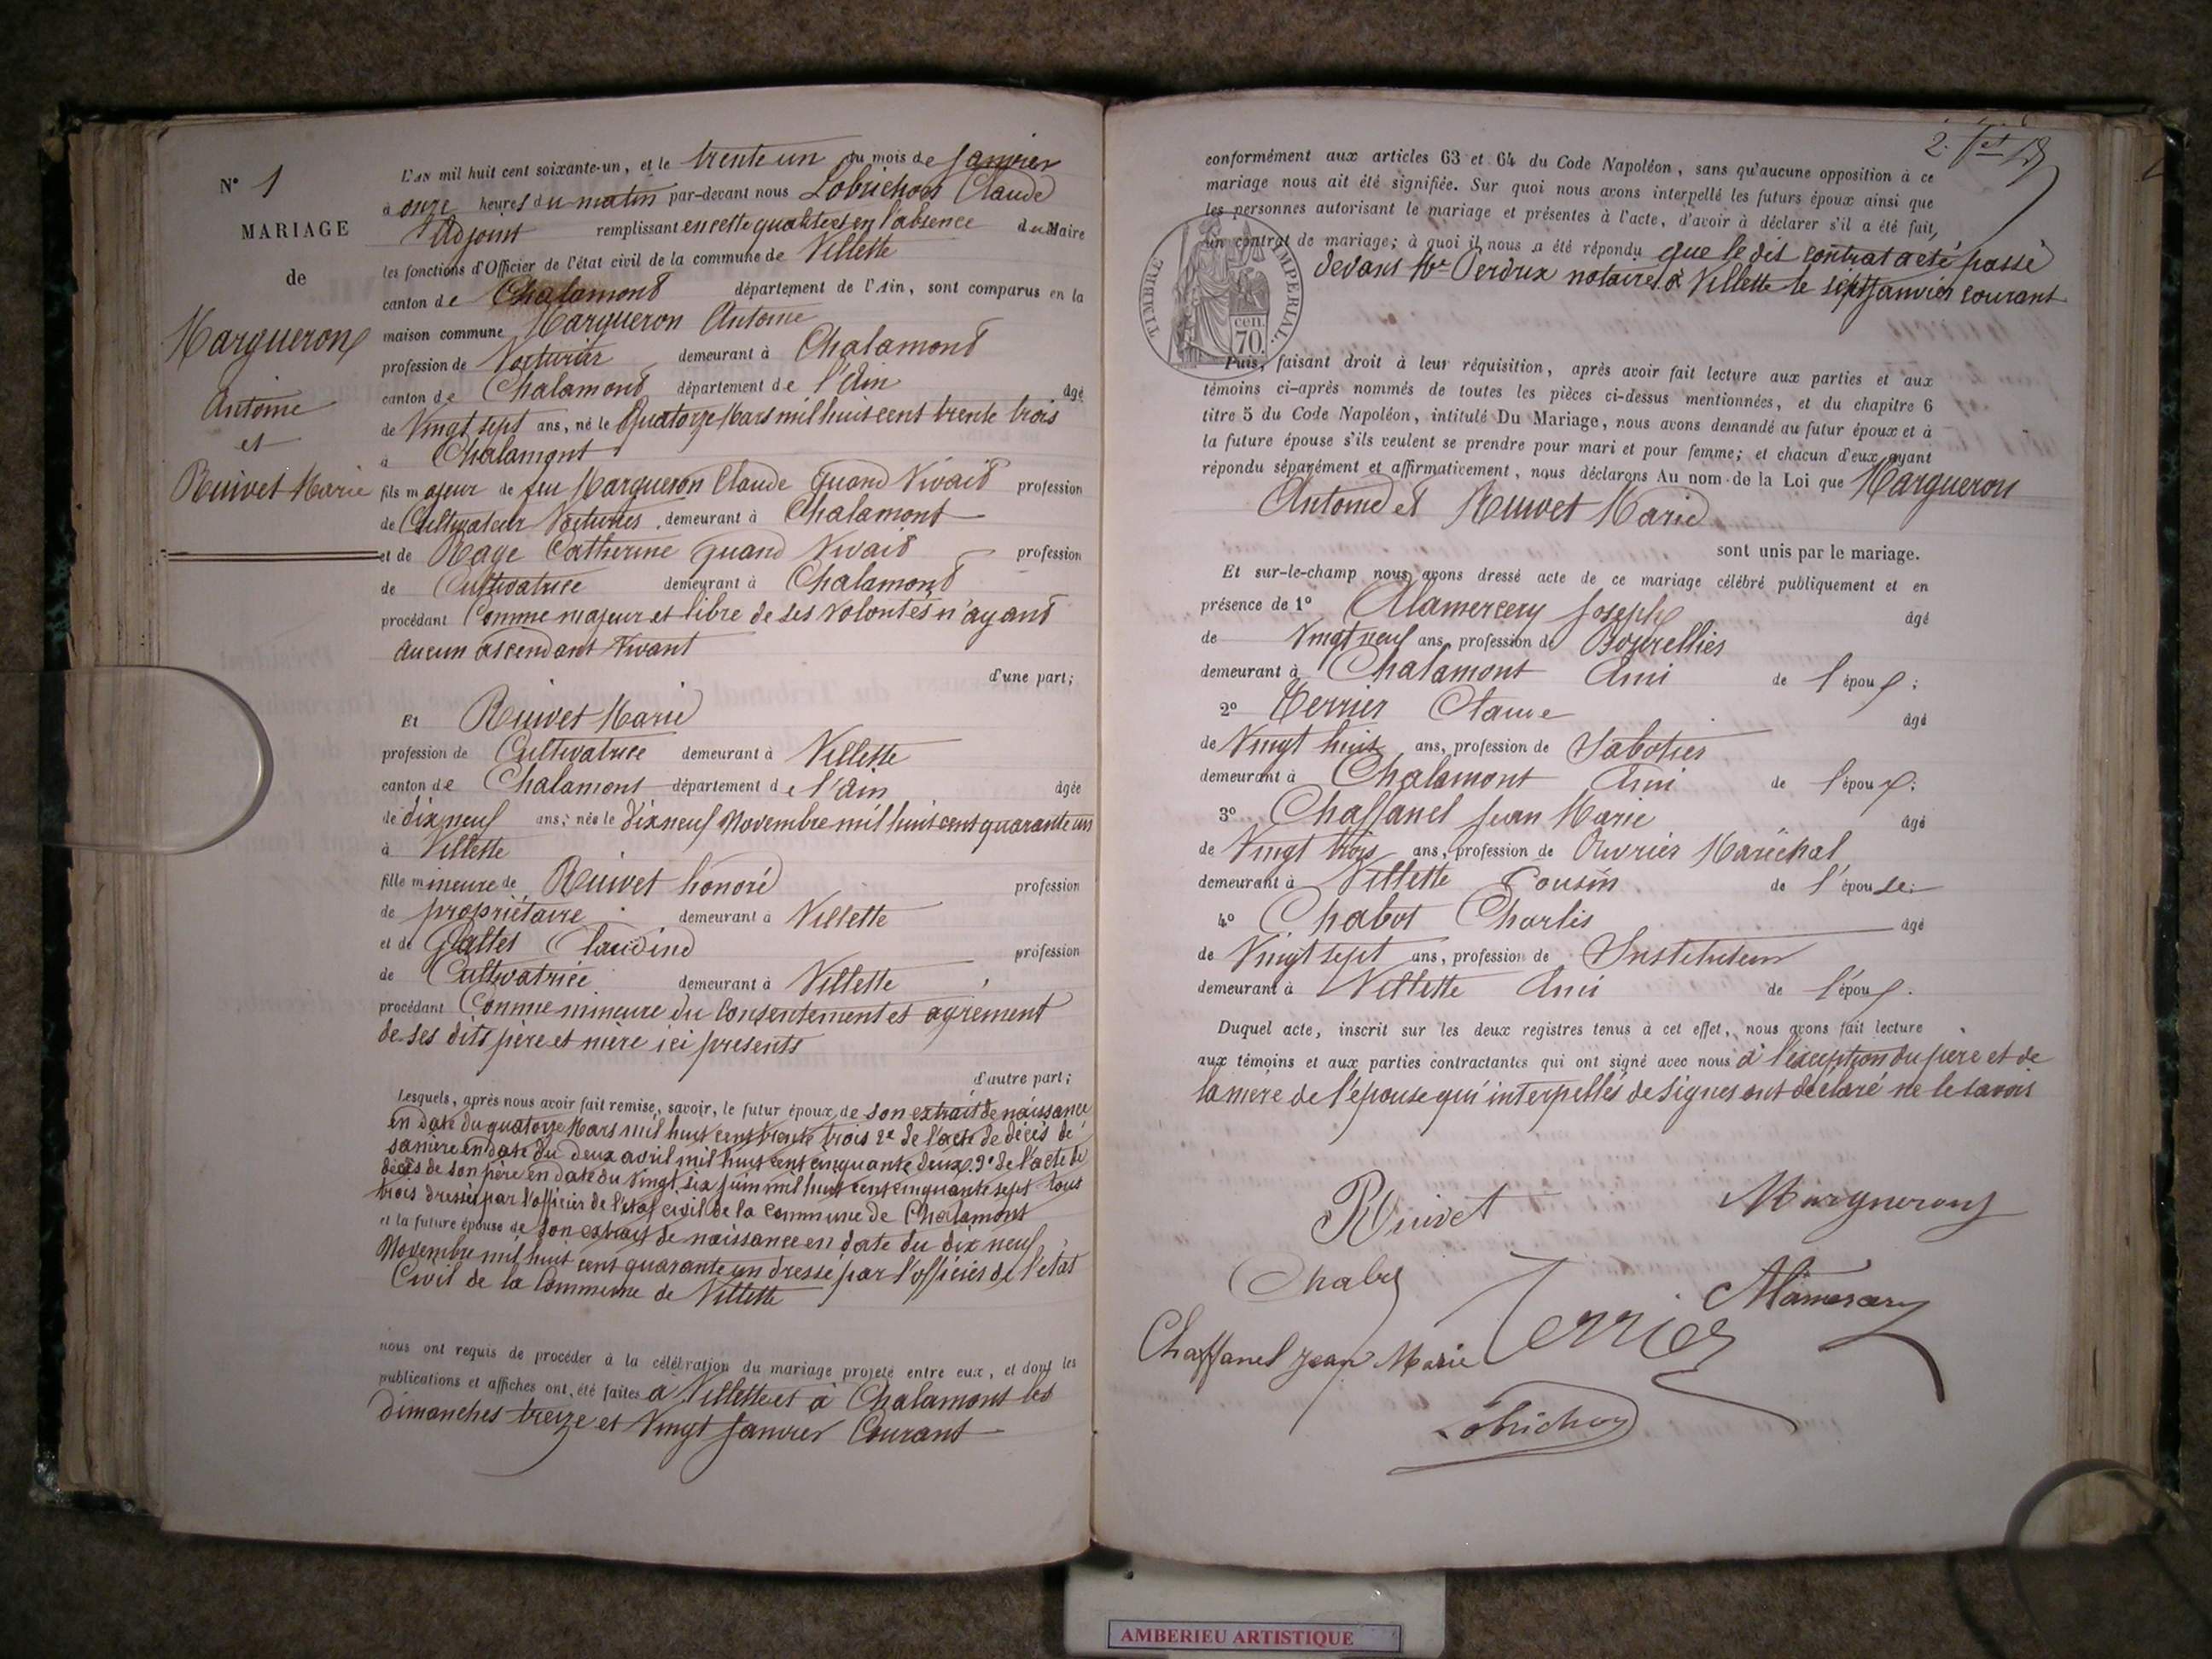 N° 1
MARIAGE
de
Margueron
Antoine
et
Ruivet Marie
L'AN mil huit cent soixante-un, et le trente un du mois de Janvier
à onze heures du matin par-devant nous Lobrichon Claude
Adjoint remplissant en cette qualité et en l'absence du Maire
les fonctions d'Officier de l'état civil de la commune de Villette
canton de Chalamont département de l'Ain, sont comparus en la
maison commune Margueron Antoine
profession de Voiturier demeurant à Chalamont
canton de Chalamont département de l'Ain âgé
de Vingt sept ans, né le Quatorze Mars mil huit cent trente trois
à Chalamont
fils majeur de feu Margueron Claude quand Vivait profession
de Cultivateur Voiturier demeurant à Chalamont
et de Rage Catherine quand Vivait profession
de Cultivatrice demeurant à Chalamont
procédant Comme majeur et libre de ses volontés n'ayant
aucun ascendant Vivant
d'une part;
Et Ruivet Marie
profession de Cultivatrice demeurant à Villette
canton de Chalamont département de l'Ain âgée
de dix neuf ans; née le dix neuf Novembre mil huit cent quarante un
à Villette
fille mineure de Ruivet honoré profession
de propriétaire demeurant à Villette
et de Claudine profession
de Cultivatrice demeurant à Villette
procédant Comme mineure du Consentement et agrément
de ses dits père et mère ici présents
d'autre part;
Lesquels, après nous avoir fait remise, savoir, le futur époux, de son extrait de naissance
en date du quatorze Mars mil huit cent trente trois 2e de l'acte de décès de
sa mère en date du deux avril mil huit cent cinquante deux 3e de l'acte de
décès de son père en date du Vingt six juin mil huit cent cinquante sept tous
trois dressés par l'officier de l'état civil de la commune de Chalamont
et la future épouse de son extrait de naissance en date du dix neuf
Novembre mil huit cent quarante un dressé par l'officier de l'état
Civil de la Commune de Villette
nous ont requis de procéder à la célébration du mariage projeté entre eux, et dont les
publications et affiches ont été faites à Villette et à Chalamont les
dimanches treize et Vingt Janvier Courant
conformément aux articles 63 et 64 du Code Napoléon, sans qu'aucune opposition à ce
mariage nous ait été signifiée. Sur quoi nous avons interpellé les futurs époux ainsi que
les personnes autorisant le mariage et présentes à l'acte, d'avoir à déclarer s'il a été fait,
un contrat de mariage; à quoi il nous a été répondu que le dit contrat a été passé
devant Me notaire à Villette le sept Janvier courant
TIMBRE IMPERIAL.
cen.
70.
Puis, faisant droit à leur réquisition, après avoir fait lecture aux parties et aux
témoins ci-après nommés de toutes les pièces ci-dessus mentionnées, et du chapitre 6
titre 5 du Code Napoléon, intitulé Du Mariage, nous avons demandé au futur époux et à
la future épouse s'ils veulent se prendre pour mari et pour femme; et chacun d'eux ayant
répondu séparément et affirmativement, nous déclarons Au nom de la Loi que Margueron
Antoine et Ruivet Marie
sont unis par le mariage.
Et sur-le-champ nous avons dressé acte de ce mariage célébré publiquement et en
présence de 1° Alamercery Joseph âgé
de Vingt neuf ans, profession de Bourrelier
demeurant à Chalamont Ami de l'époux;
2° Terrier Claude âgé
de Vingt huit ans, profession de Sabotier
demeurant à Chalamont Ami de l'époux;
3° Chaffanel Jean Marie âgé
de Vingt trois ans, profession de Ouvrier Maréchal
demeurant à Villette Cousin de l'épouse;
4° Chabot Charles âgé
de Vingt sept ans, profession de Instituteur
demeurant à Villette Ami de l'époux.
Duquel acte, inscrit sur les deux registres tenus à cet effet, nous avons fait lecture
aux témoins et aux parties contractantes qui ont signé avec nous à l'exception du père et de
la mère de l'épouse qui interpellés de signer ont déclaré ne le savoir
Ruivet
Margueron
Chabot
Alamercery
Terrier
Chaffanel Jean Marie
Lobrichon
AMBERIEU ARTISTIQUE